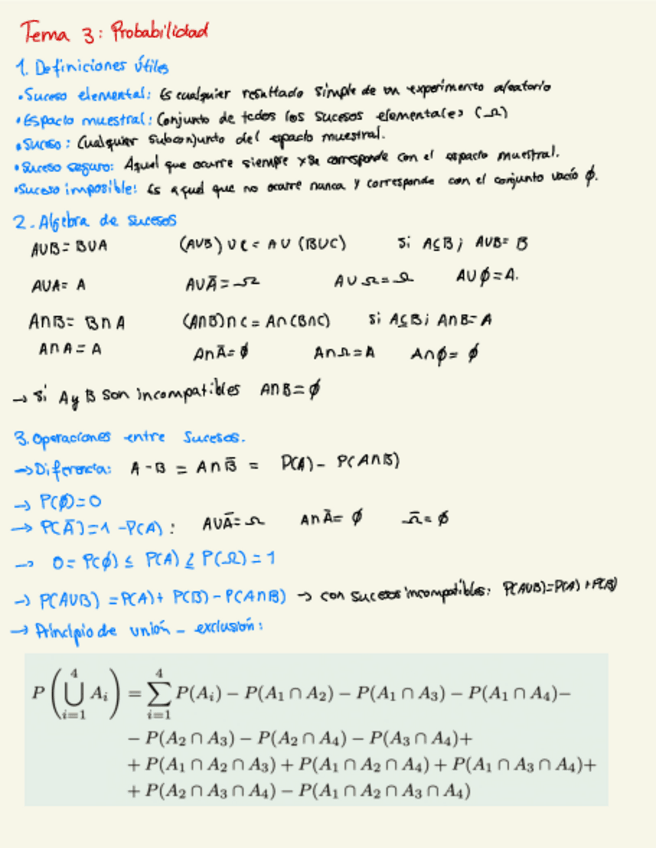 Tema 3: Probabilidad
1. Definiciones Útiles
• Suceso elemental: Es cualquier resultado simple de un experimento aleatorio
• Espacio muestral: Conjunto de todos los sucesos elementales (Ω)
• Suceso: Cualquier subconjunto del espacio muestral.
• Suceso seguro: Aquel que ocurre siempre y se corresponde con el espacio muestral.
• Suceso imposible: Es aquel que no ocurre nunca y corresponde con el conjunto vacío ∅.
2. Algebra de sucesos
A∪B = B∪A (A∪B)∪C = A∪(B∪C) Si A⊆B; A∪B = B
A∪A = A A∪Ā = Ω A∪Ω = Ω A∪∅ = A.
A∩B = B∩A (A∩B)∩C = A∩(B∩C) Si A⊆B; A∩B = A
A∩A = A A∩Ā = ∅ A∩Ω = A A∩∅ = ∅
→ Si A y B son incompatibles A∩B = ∅
3. Operaciones entre Sucesos.
→ Diferencia: A - B = A∩B̄ = P(A) - P(A∩B)
→ P(∅) = 0
→ P(Ā) = 1 - P(A): A∪Ā = Ω A∩Ā = ∅ Ω̄ = ∅
→ 0 = P(∅) ≤ P(A) ≤ P(Ω) = 1
→ P(A∪B) = P(A) + P(B) - P(A∩B) → con sucesos incompatibles: P(A∪B) = P(A) + P(B)
→ Principio de unión - exclusión:
P(⋃_{i=1}^{4} A_i) = ∑_{i=1}^{4} P(A_i) − P(A_1 ∩ A_2) − P(A_1 ∩ A_3) − P(A_1 ∩ A_4)−
− P(A_2 ∩ A_3) − P(A_2 ∩ A_4) − P(A_3 ∩ A_4)+
+ P(A_1 ∩ A_2 ∩ A_3) + P(A_1 ∩ A_2 ∩ A_4) + P(A_1 ∩ A_3 ∩ A_4)+
+ P(A_2 ∩ A_3 ∩ A_4) − P(A_1 ∩ A_2 ∩ A_3 ∩ A_4)